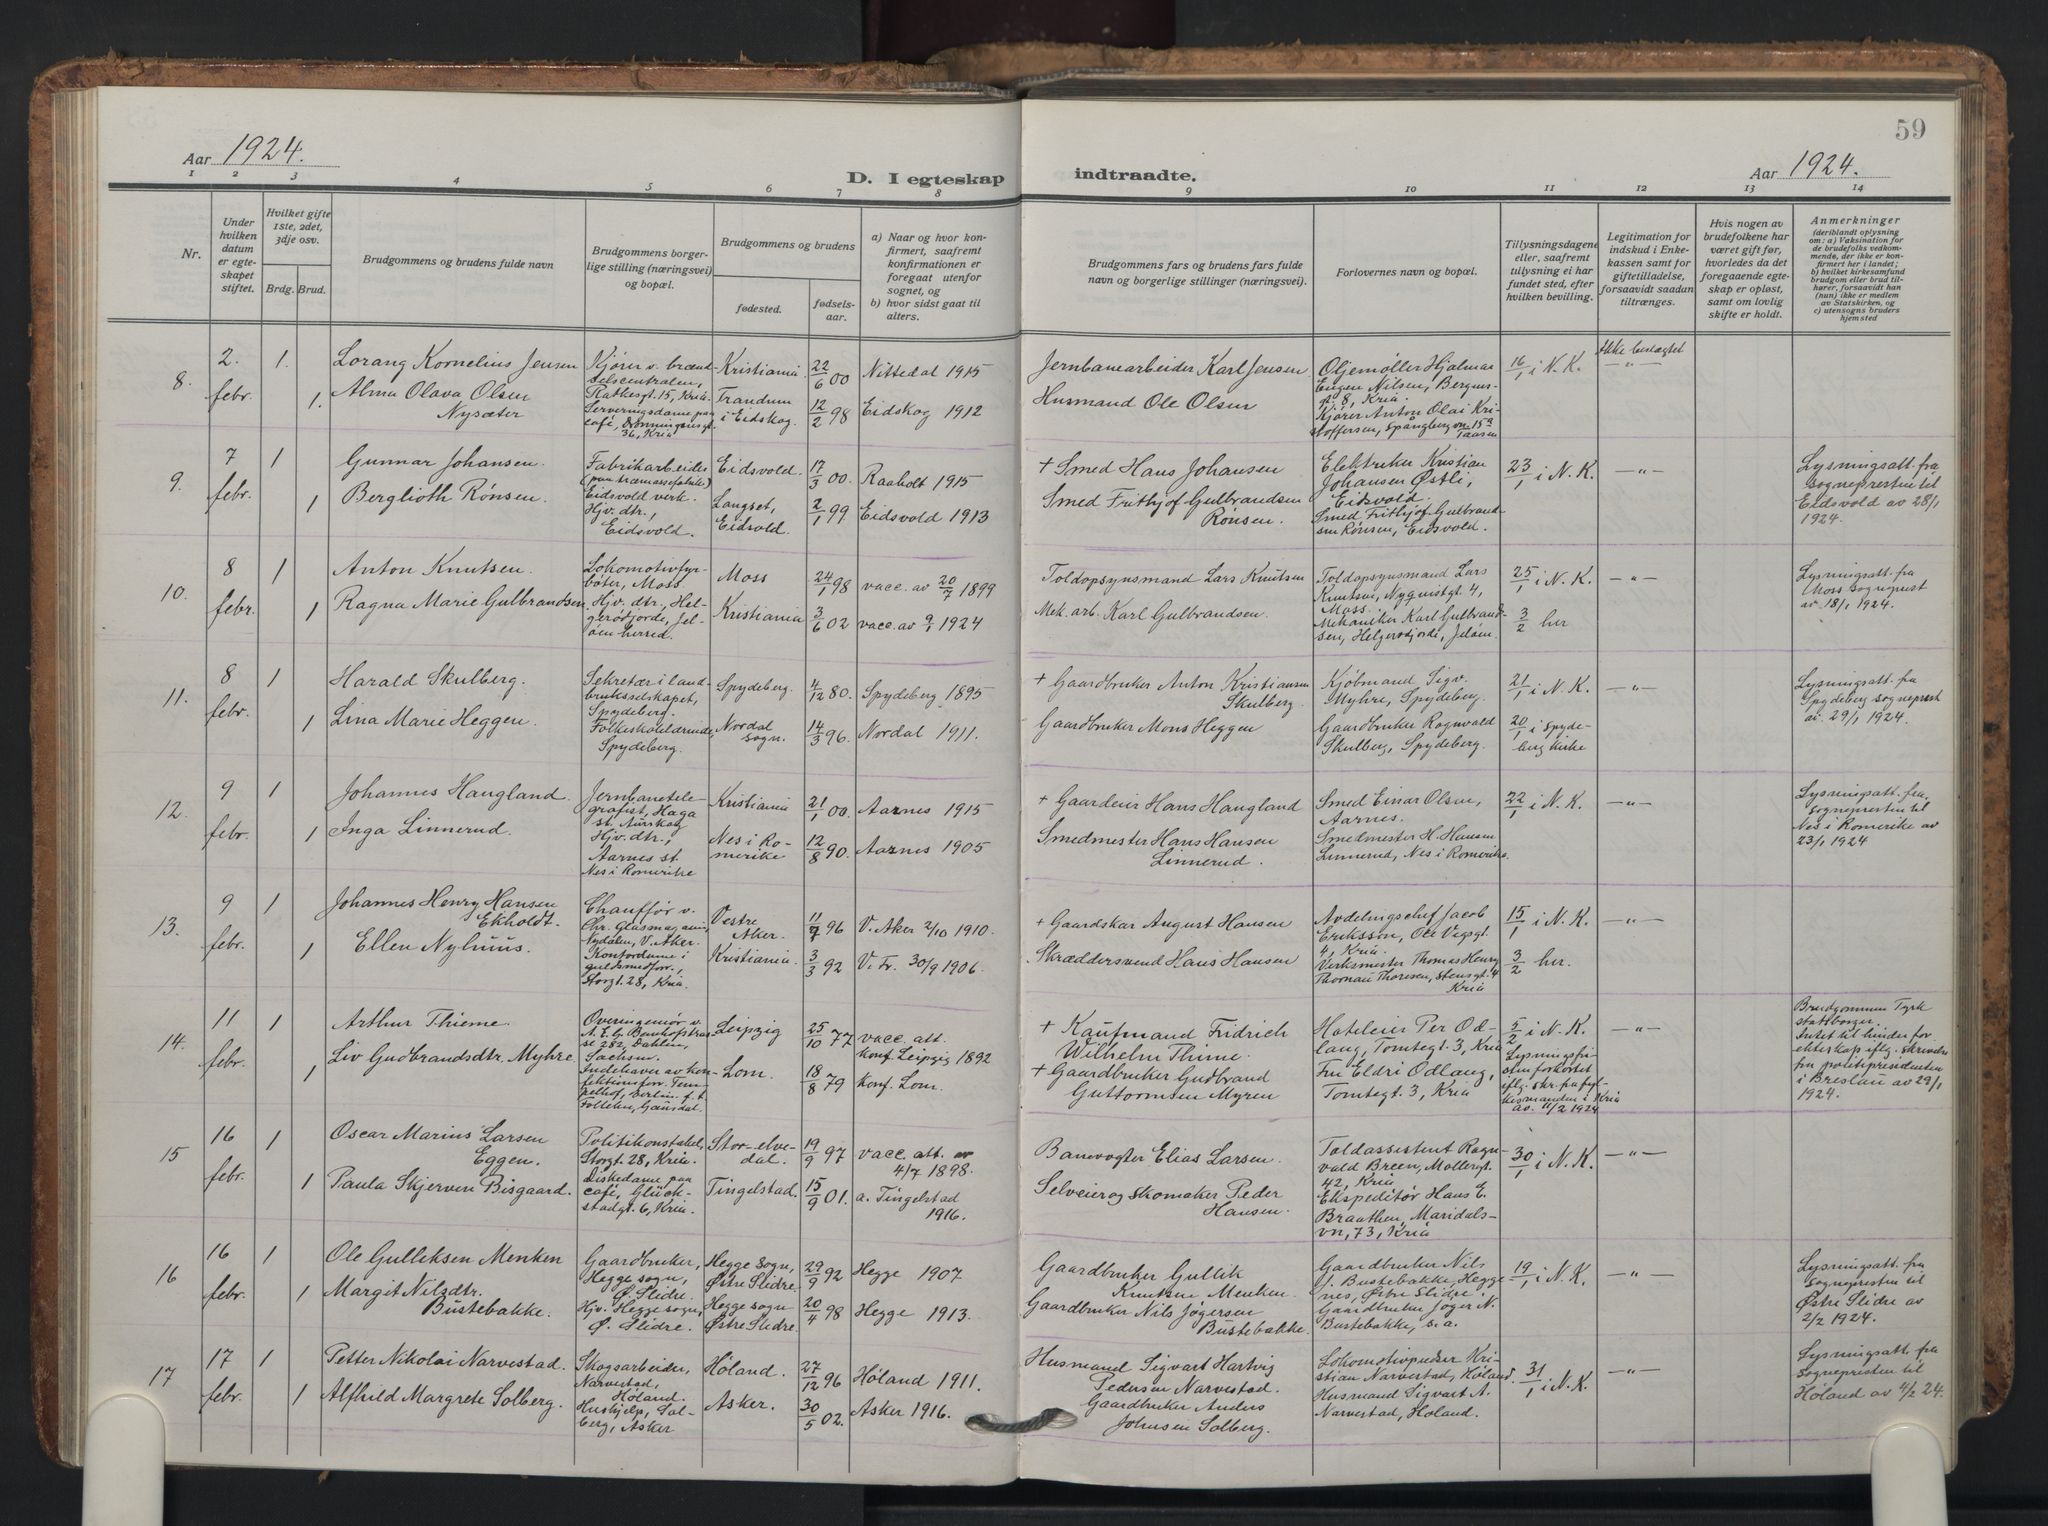 59
Aar 1924.
Aar 1924.
D. I egteskap indtraadte.
1 2 3 4 5 6 7 8 9 10 11 12 13 14
Nr.
Under hvilken datum er egteskapet stiftet.
Hvilket gifte 1ste, 2det, 3dje osv.
Brdg. Brud.
Brudgommens og brudens fulde navn
Brudgommens borgerlige stilling (næringsvei) og bopæl.
Brudgommens og brudens
fødested.
fødselsaar.
a) Naar og hvor konfirmert, saafremt konfirmationen er foregaat utenfor sognet, og
b) hvor sidst gaat til alters.
Brudgommens fars og brudens fars fulde navn og borgerlige stillinger (næringsvei).
Forlovernes navn og bopæl.
Tillysningsdagene eller, saafremt tillysning ei har fundet sted, efter hvilken bevilling.
Legitimation for indskud i Enkekassen samt for giftetilladelse, forsaavidt saadan tiltrænges.
Hvis nogen av brudefolkene har været gift før, hvorledes da det foregaaende egteskap er opløst, samt om lovlig skifte er holdt.
Anmerkninger
(deriblandt oplysning om: a) Vaksination for de brudefolks vedkommende, der ikke er konfirmert her i landet;
b) hvilket kirkesamfund brudgom eller brud tilhører, forsaavidt han (hun) ikke er medlem av Statskirken, og
c) utensogns bruders hjemsted
8. 2. febr. 1. 1.
Lorang Kornelius Jensen
Alma Olava Olsen
Nysæter
Kjører v. brændselscentralen,
Ratkesgt. 15, Kria.
Serveringsdame paa
café, Dronningensgt.
36, Kria
Kristiania 22/6 00 Nittedal 1915
Trandum
i Eidskog. 12/2 98 Eidskog 1912
Jernbanearbeider Karl Jensen
Husmand Ole Olsen
Oljemøller Hjalmar
Eugen Nilsen, Bergensgt. 8, Kria
Kjører Anton Olai Kristoffersen, Spångbergvn 15
Taasen
16/1 i N. K.
Ikke beslægtet
—"—
9. 7 febr. 1 1
Gunnar Johansen.
Berglioth Rønsen.
Fabrikarbeider
(paa træmassefabrik)
Eidsvold verk.
Hjv. dtr.,
Eidsvold.
Eidsvold. 17/3 00. Raaholt 1915
Langset,
Eidsvold. 2/1 99 Eidsvold 1913
+ Smed Hans Johansen
Smed Frithjof Gulbrandsen
Rønsen.
Elektriker Kristian
Johansen Østli,
Eidsvold.
Smed Frithjof Gulbrandsen Rønsen, Eidsvold.
23/1 i N. K. —"—
Lysningsatt. fra
sogneprsten til
Eidsvold av 28/1
1924.
10. 8 febr. 1 1
Anton Knutsen.
Ragna Marie Gulbrandsen.
Lokomotivfyrbøter, Moss
Hjv. dtr., Helgerødjorde, Jeløen herred.
Moss 24/1 98 vacc. av 20/7 1899
Kristiania 3/6 02 vacc. av 9/1 1924
Toldopsynsmand Lars Knutsen
Mek. arb. Karl Gulbrandsen.
Toldopsynsmand Lars
Knutsen, Nyquistgt. 4,
Moss.
Mekaniker Karl Gulbrandsen, Helgerødjorde, Jeløen.
25/1 i N. K.
3/2 her
—"—
Lysningsatt. fra
Moss sogneprest
av 18/1 1924.
11. 8 febr. 1 1
Harald Skulberg.
Lina Marie Heggen.
Sekretær i landbruksselskapet,
Spydeberg.
Folkeskolelærerinde,
Spydeberg.
Spydeberg. 4/12 80. Spydeberg 1895
Nordal
sogn. 14/3 96. Nordal 1911.
+ Gaardbruker Anton Kristiansen
Skulberg.
Gaardbruker Mons Heggen
Kjøbmand Sigv.
Myhre, Spydeberg.
Gaardbruker Ragnvald
Skulberg, Spydeberg.
21/1 i N. K.
20/1 i Spydeberg kirke
—"—
Lysningsatt. fra
Spydeberg sogneprest
av. 29/1 1924.
12. 9 febr. 1 1
Johannes Haugland.
Inga Linnerud.
Jernbanetelegrafist, Haga
st. Aurskog
Hjv. dtr.,
Aarnes st.
Nes i Romerike
Kristiania 21/1 00. Aarnes 1915
Nes i Romerike 12/8 90. Aarnes 1905
+ Gaardeier Hans Haugland
Smedmester Hans Hansen
Linnerud.
Smed Einar Olsen,
Aarnes.
Smedmester H. Hansen
Linnerud, Nes i Romerike.
22/1 i N. K. —"—
Lysningsatt. fra
sogneprsten til
Nes i Romerike av
23/1 1924
13. 9 febr. 1 1
Johannes Henry Hansen
Ekholdt.
Ellen Nylund
Chauffør v.
Chr. Glasmagasin,
Nydalen, V. Aker.
Kontordame i
guldsmedforr.,
Storgt. 28, Kria.
Vestre
Aker. 11/7 96 V. Aker 2/10 1910.
Kristiania. 3/3 92 V. Fr. 30/9 1906.
+ Gaardskar August Hansen
Skræddersvend Hans Hansen
Avdelingschef Jacob
Eriksson, Ole Vigsgt.
4, Kria.
Verksmester Thomas Henry
Thoresen, Stensgt. 4
Kria
15/1 i N. K.
3/2 her.
—"—
14. 11 febr. 1 1
Arthur Thieme.
Liv Gudbrandsdtr. Myhre
Overingeniør v.
282, Dahlen,
Sachsen.
Indehaver av konfektionsforr. Tempelhof, Berlin. f. t.
Follebu, Gausdal.
Leipzig 25/10 77 vacc. att.
Konf. Leipzig 1892
Lom. 18/8 79 Konf. Lom.
+ Kaufmand Fridrich
Wilhelm Thime.
+ Gaardbruker Gudbrand
Guttormsen Myren
Hoteleier Per Odlaug, Tomtegt. 3, Kria
Fru Eldri Odlaug,
Tomtegt. 3, Kria
5/2 i N. K.
Lysningsfristen forkortet
iflg. skr. fra fylkesmanden i Kria
av. 11/2 1924
—"—
Brudgommen Tysk
statsborger.
Intet til hinder for
ekteskap iflg. skrivelse
fra politipresidenten
i Breslau av 29/1
1924.
15 16 febr. 1 1
Oscar Marius Larsen
Eggen.
Paula Skjerven Bisgaard.
Politikonstabel,
Storgt. 28, Kria.
Diskedame paa
café, Glückstadgt. 6, Kria.
Stor-elvedal. 19/9 97 vacc. att. av
4/7 1898.
Tingelstad. 15/9 01. a. Tingelstad
1916.
Banevogter Elias Larsen.
Selveier og skomaker Peder
Hansen.
Toldassistent Ragnvald Breen, Møllergt.
42, Kria
Ekspeditør Hans E.
Braathen, Maridalsvn, 73, Kria
30/1 i N. K. —"—
16 16 febr. 1 1
Ole Gulliksen Menken
Margit Nilsdtr.
Bustebakke.
Gaardbruker,
Hegge sogn,
Ø. Slidre.
Hjv. Hegge sogn,
Ø. Slidre.
Hegge sogn,
Østre Slidre. 29/9 92 Hegge 1907
Hegge sogn
Østre Slidre. 20/4 98 Hegge 1913.
Gaardbruker Gullik
Knutsen Menken.
Gaardbruker Nils Jøgersen
Bustebakke.
Gaardbruker Nils
J. Bustebakke, Heggenes, Østre Slidre
Gaardbruker Jøger N.
Bustebakke, s. a.
19/1 i N. K. —"—
Lysningsatt. fra
sogneprsten til
Østre Slidre av
2/2 1924.
17 17 febr. 1 1
Petter Nikolai Narvestad.
Alfhild Margrete Solberg.
Skogsarbeider,
Narvestad,
Høland.
Hushjelp, Solberg, Asker
Høland. 27/12 96 Høland 1911.
Asker. 30/5 02. Asker 1916.
Husmand Sigvart Hartvig
Pedersen Narvestad.
Gaardbruker Anders
Johnsen Solberg.
Lokomotivpudser Kristian Narvestad, Høland.
Husmand Sigvart A.
Narvestad, Høland.
31/1 i N. K. —"—
Lysningsatt. fra
sogneprsten til
Høland av 4/2 24.